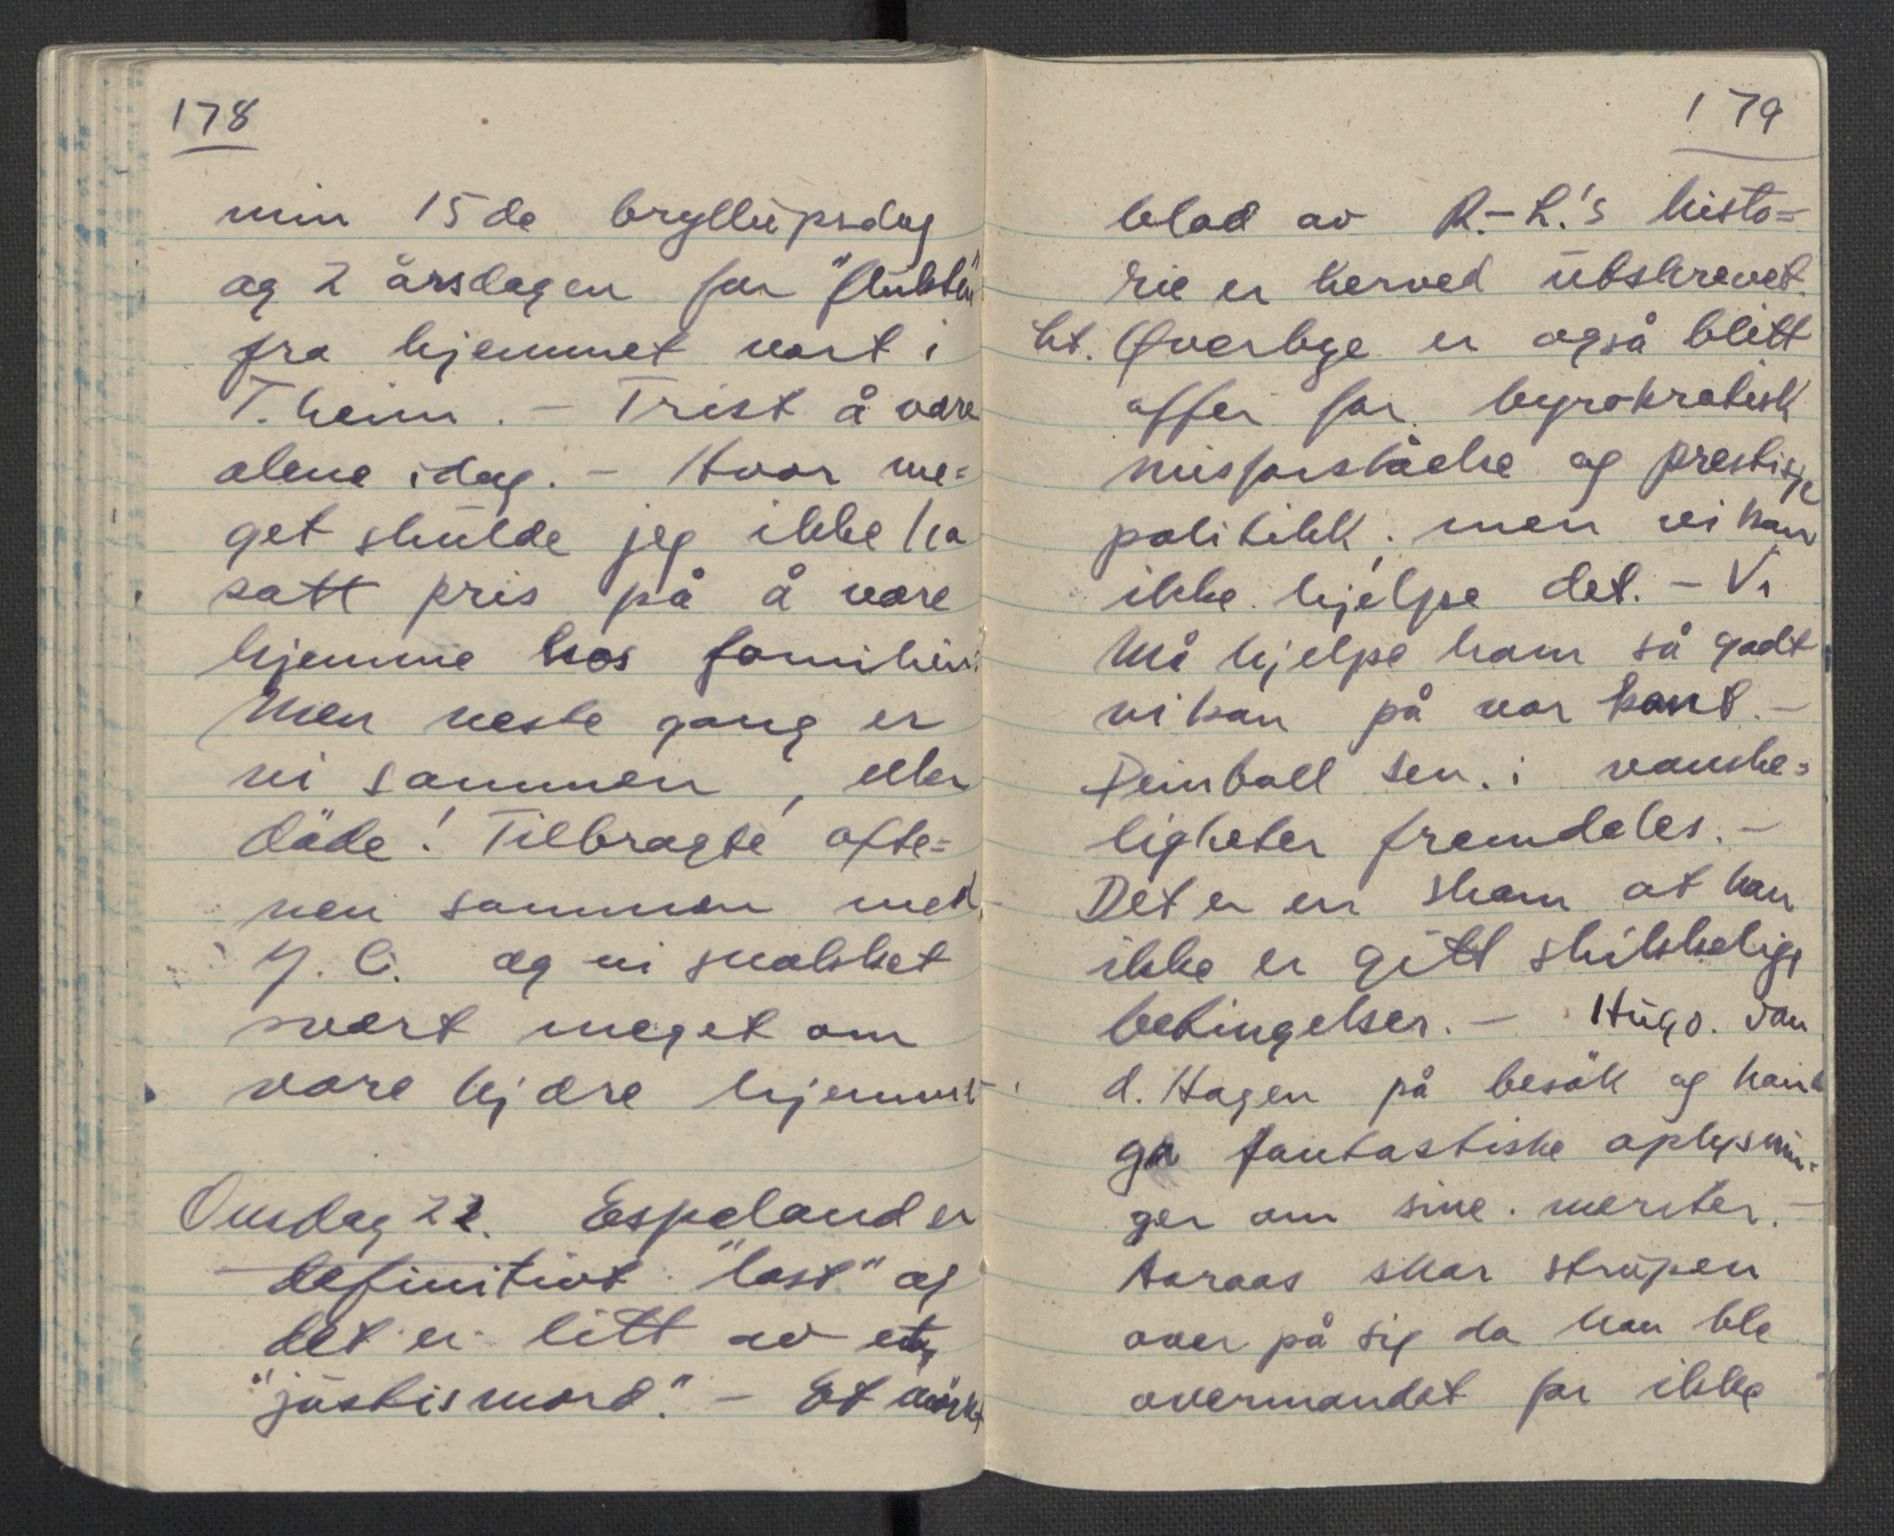 178
min 15de bryllupsdag
og 2 årsdagen for "flukten"
fra hjemmet vort i
T.heim. - Trist å være
alene idag. - Hvor me=
get skulde jeg ikke ha
satt pris på å være
hjemme hos familien!
Men neste gang er
vi sammen, eller
døde! Tilbragte afte=
nen sammen med
og vi snakket
svært meget om
våre kjære hjemme
Onsdag 22. Espeland er
definitivt "lost" og
det er litt av et
"justismord". - Et mørkt
179
blad av R.-L.'s histo=
rie er herved utskrevet.
Lt. Øverbye er også blitt
offer for byrokratisk
misforståelse og prestisje
politikk, men vi kan
ikke hjelpe det. - Vi
må hjelpe ham så godt
vi kan på vor kant. -
Deinboll sen. i vanske=
ligheter fremdeles. -
Det er en skam at han
ikke er gitt skikkelige
betingelser. - Hugo van
d. Hagen på besøk og han
ga fantastiske oplysnin=
ger om sine meriter. -
Aaraas skar strupen
over på sig da han ble
overmandet for ikke